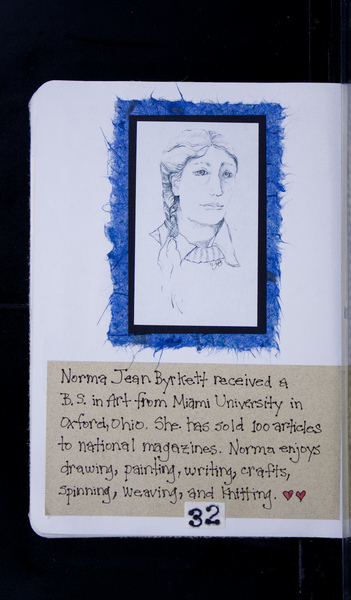 Norma Jean Byrkett received a
B.S. in Art from Miami University in
Oxford, Ohio. She has sold 100 articles
to national magazines. Norma enjoys
drawing, painting, writing, crafts,
spinning, weaving, and knitting.
32